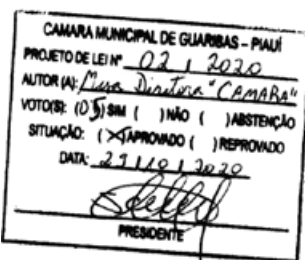 CAMARA MUNICIPAL DE GUARIBAS - PIAUÍ
PROJETO DE LEI Nº 02 / 2020
AUTOR (A): Mesa Diretora "CAMARA"
VOTO(S): (05) SIM ( ) NÃO ( ) ABSTENÇÃO
SITUAÇÃO: (X) APROVADO ( ) REPROVADO
DATA: 29 / 10 / 2020
PRESIDENTE